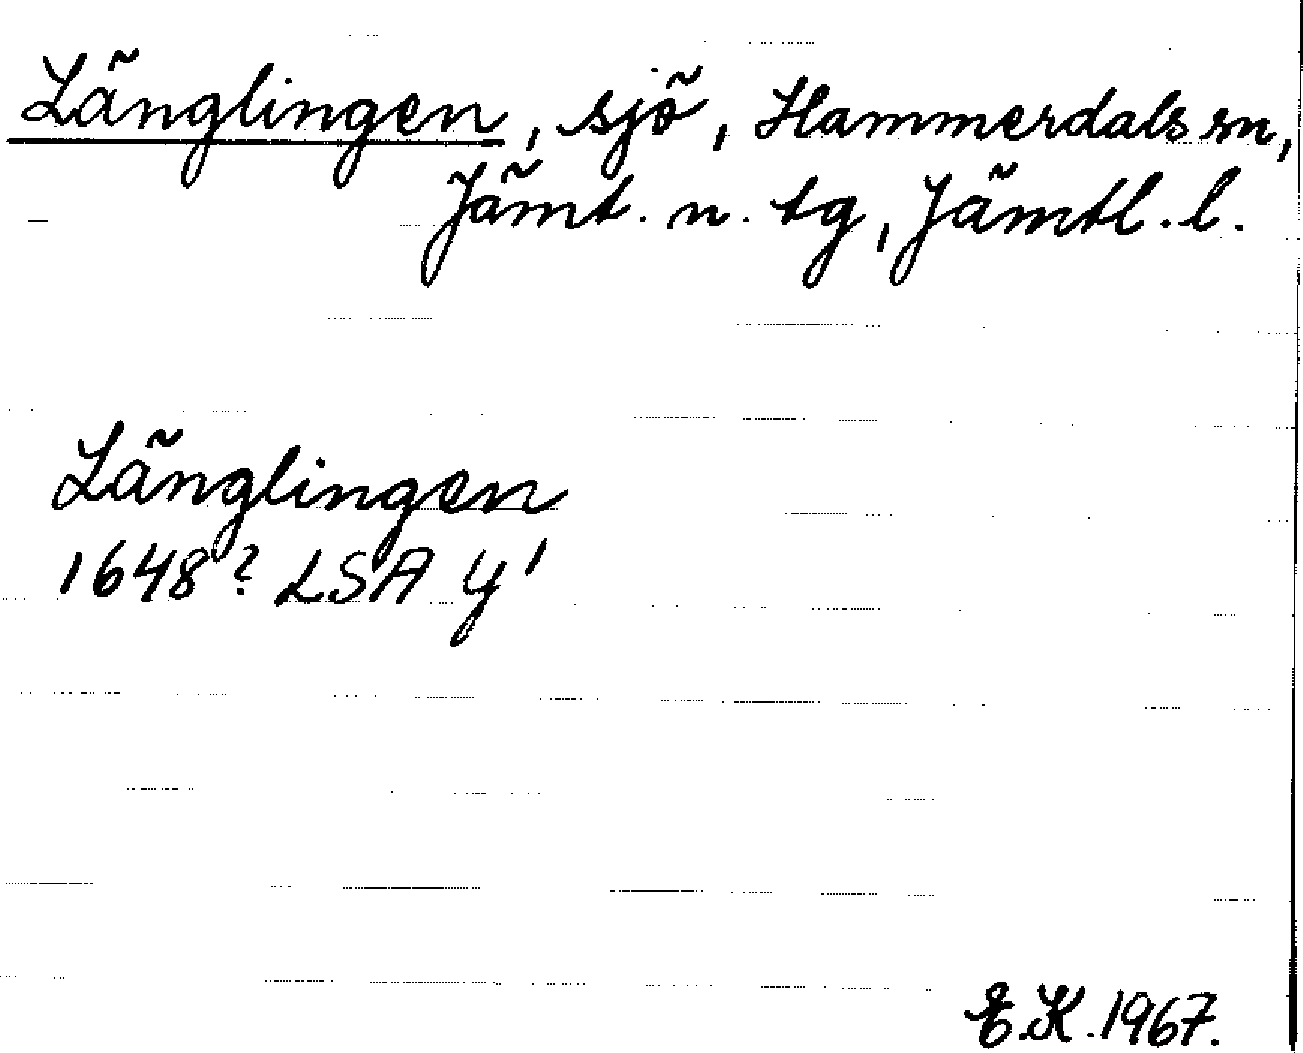 Länglingen, sjö, Hammerdals sn,
Jämt. n. tg, Jämtl. l.
Länglingen
1648? LSA Y¹
E.K. 1967.